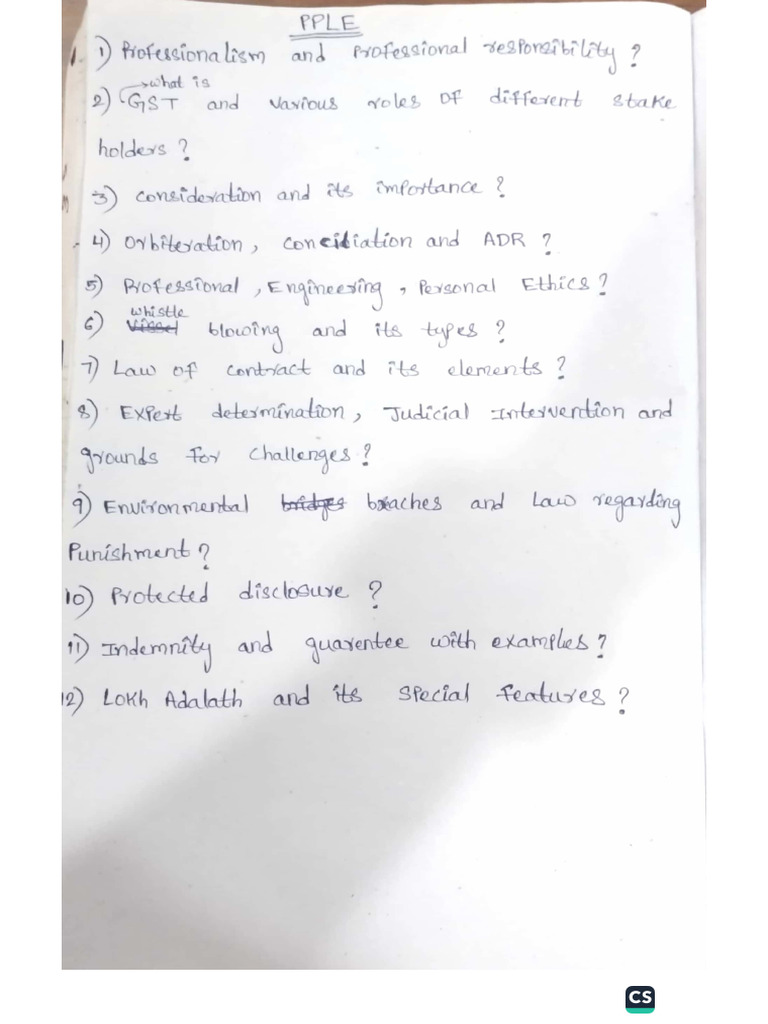 PPLE
1) Professionalism and Professional responsibility ?
what is
2) GST and various roles of different stake
holders ?
3) Consideration and its importance ?
4) Orbiteration, Conciliation and ADR ?
5) Professional, Engineering, Personal Ethics ?
whistle
6) Vissel blowing and its types ?
7) Law of contract and its elements ?
8) Expert determination, Judicial Intervention and
grounds for challenges ?
9) Environmental bridges breaches and Law regarding
Punishment ?
10) Protected disclosure ?
11) Indemnity and guarentee with examples ?
12) Lokh Adalath and its special features ?
CS